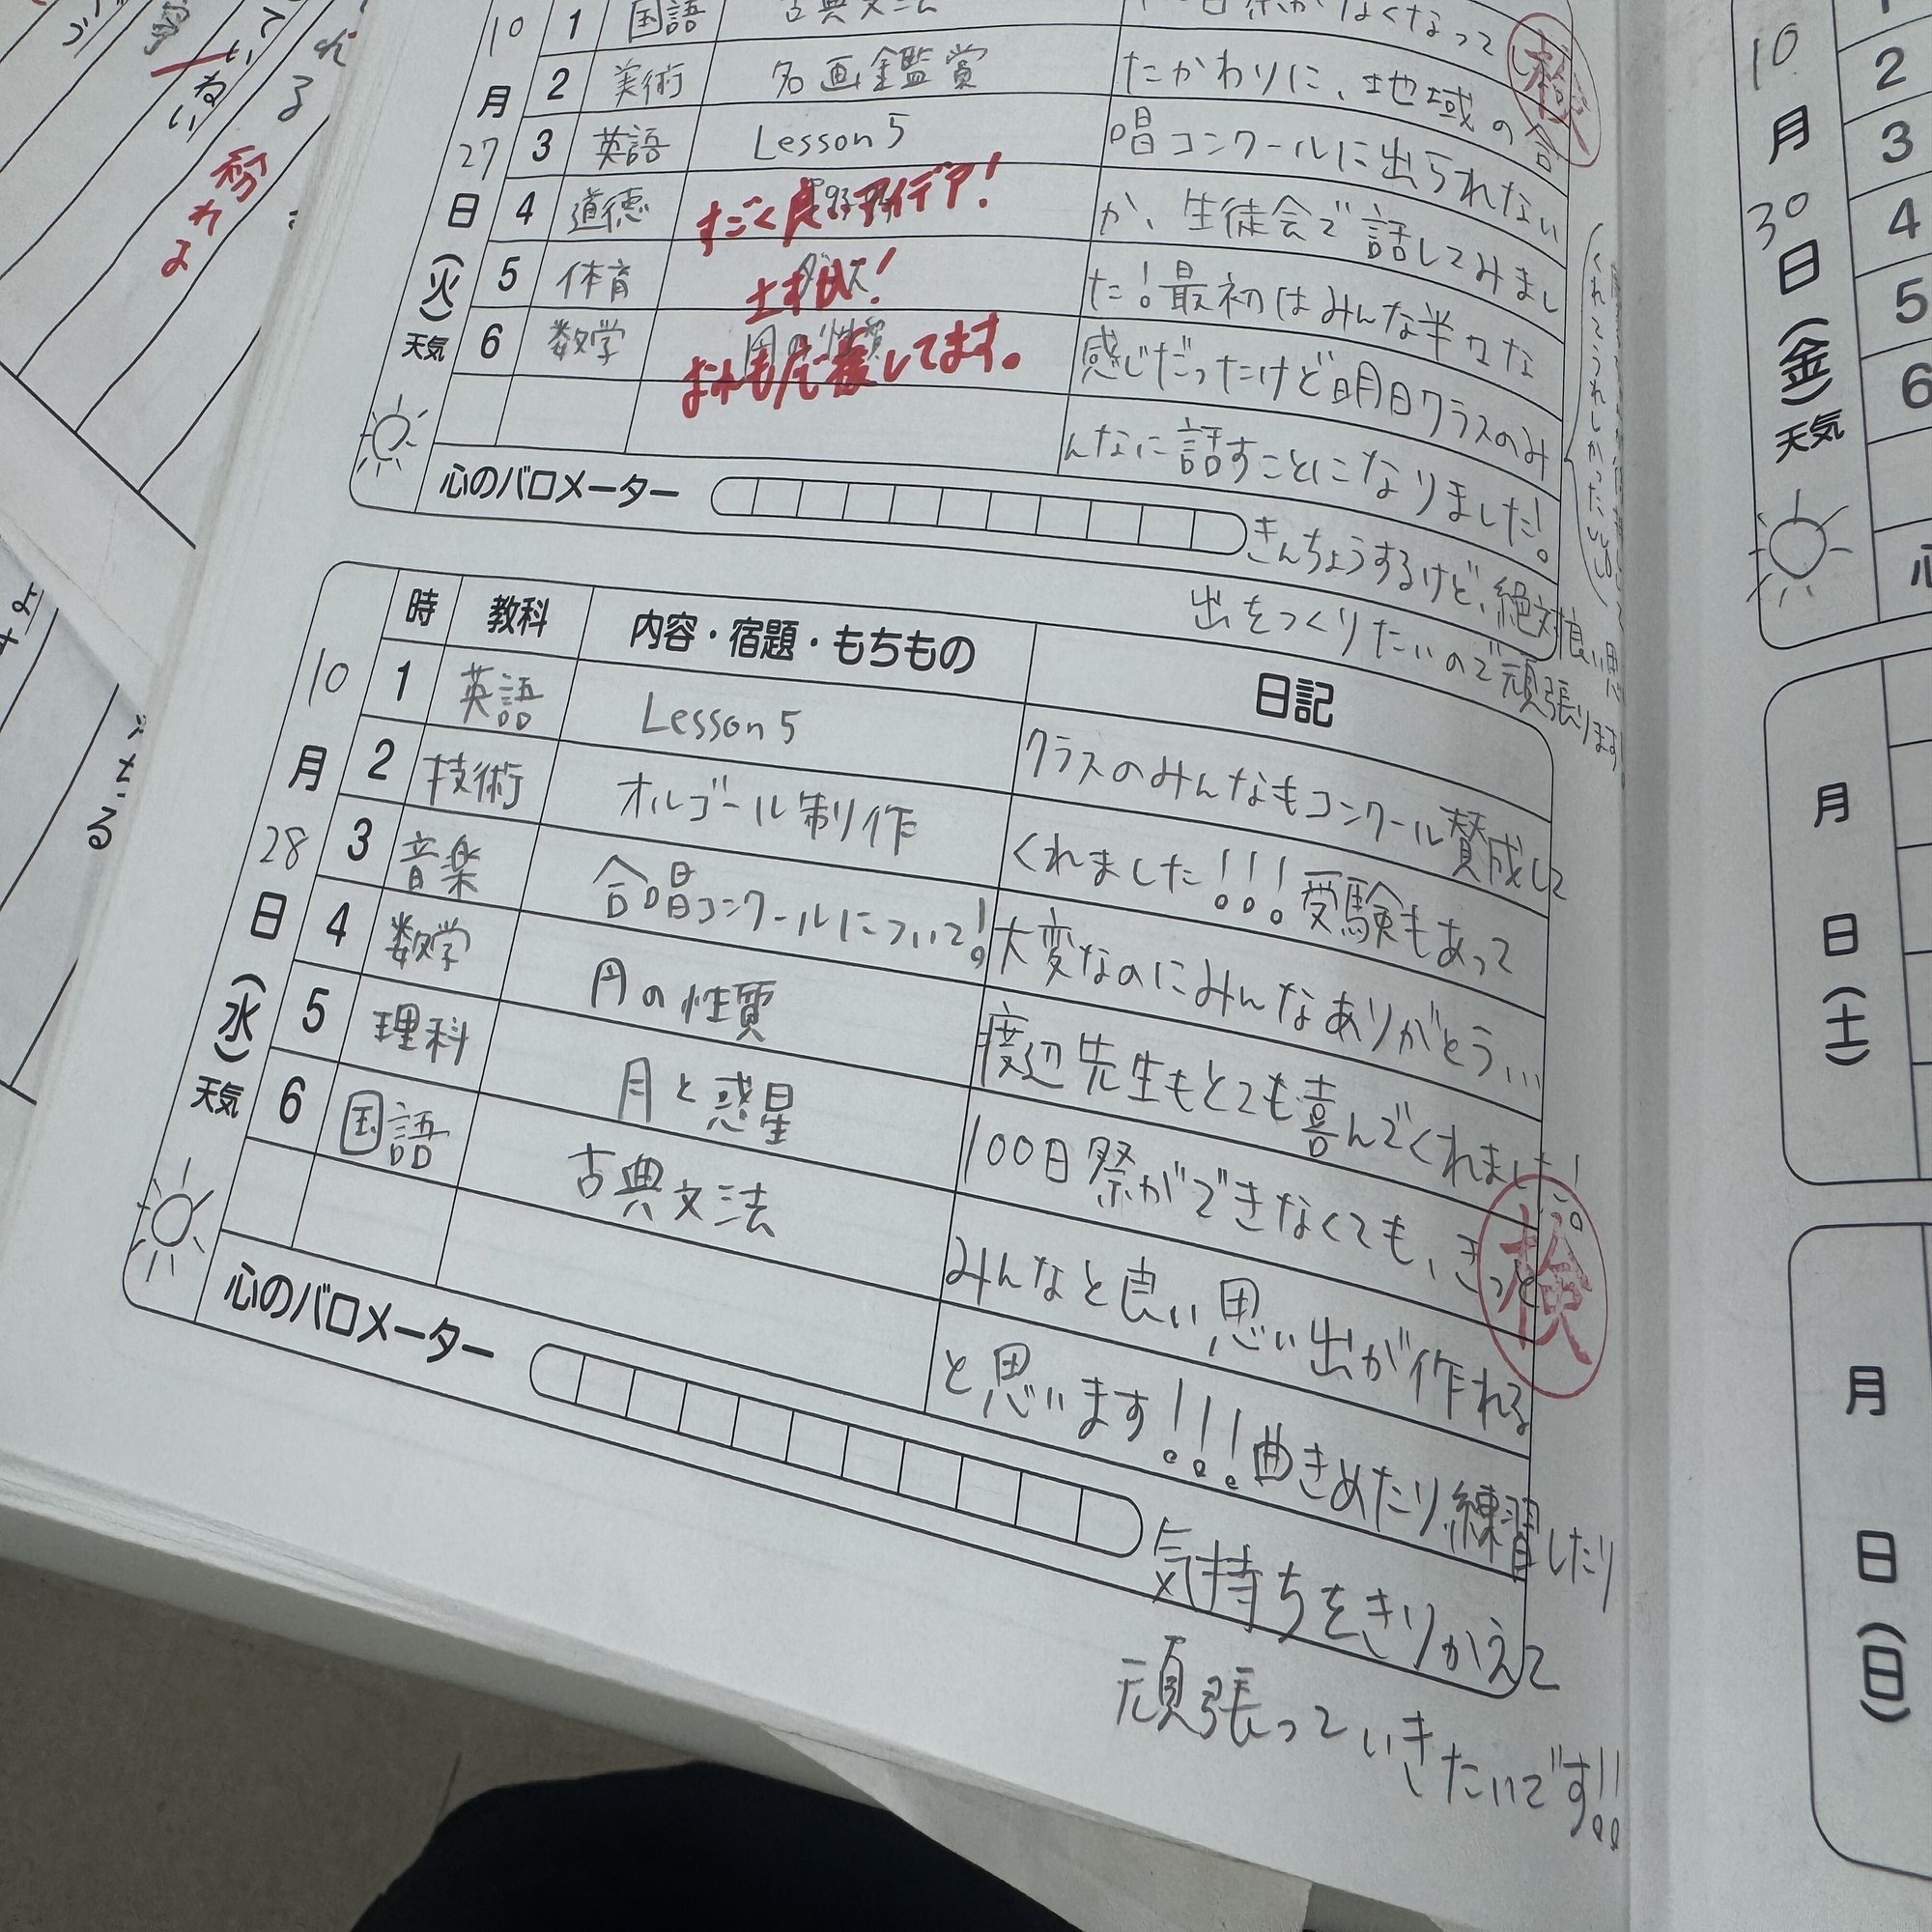 10
月
27
日
(火)
天気
1 国語 古典文法
2 美術 名画鑑賞
3 英語 Lesson 5
4 道徳
5 体育
6 数学 円の性質
すごく良いアイデア!
応援してます。
日祭がなくなって
たかわりに、地域の合
唱コンクールに出られない
か、生徒会で話してみまし
た!最初はみんな半々な
感じだったけど明日クラスのみ
んなに話すことになりました!
きんちょうするけど、絶対良い思
出をつくりたいので頑張ります
検
心のバロメーター
時 教科 内容・宿題・もちもの 日記
10
月
28
日
(水)
天気
1 英語 Lesson 5
2 技術 オルゴール制作
3 音楽 合唱コンクールについて!
4 数学 円の性質
5 理科 月と惑星
6 国語 古典文法
クラスのみんなもコンクール賛成して
くれました!!!受験もあって
大変なのにみんなありがとう...
渡辺先生もとても喜んでくれました!
100日祭ができなくても、きっと
みんなと良い思い出が作れる
と思います!!!曲きめたり練習したり
気持ちをきりかえて
頑張っていきたいです!!
検
心のバロメーター
10
月
30
日
(金)
天気
2
3
4
5
6
月
日
(土)
月
日
(日)